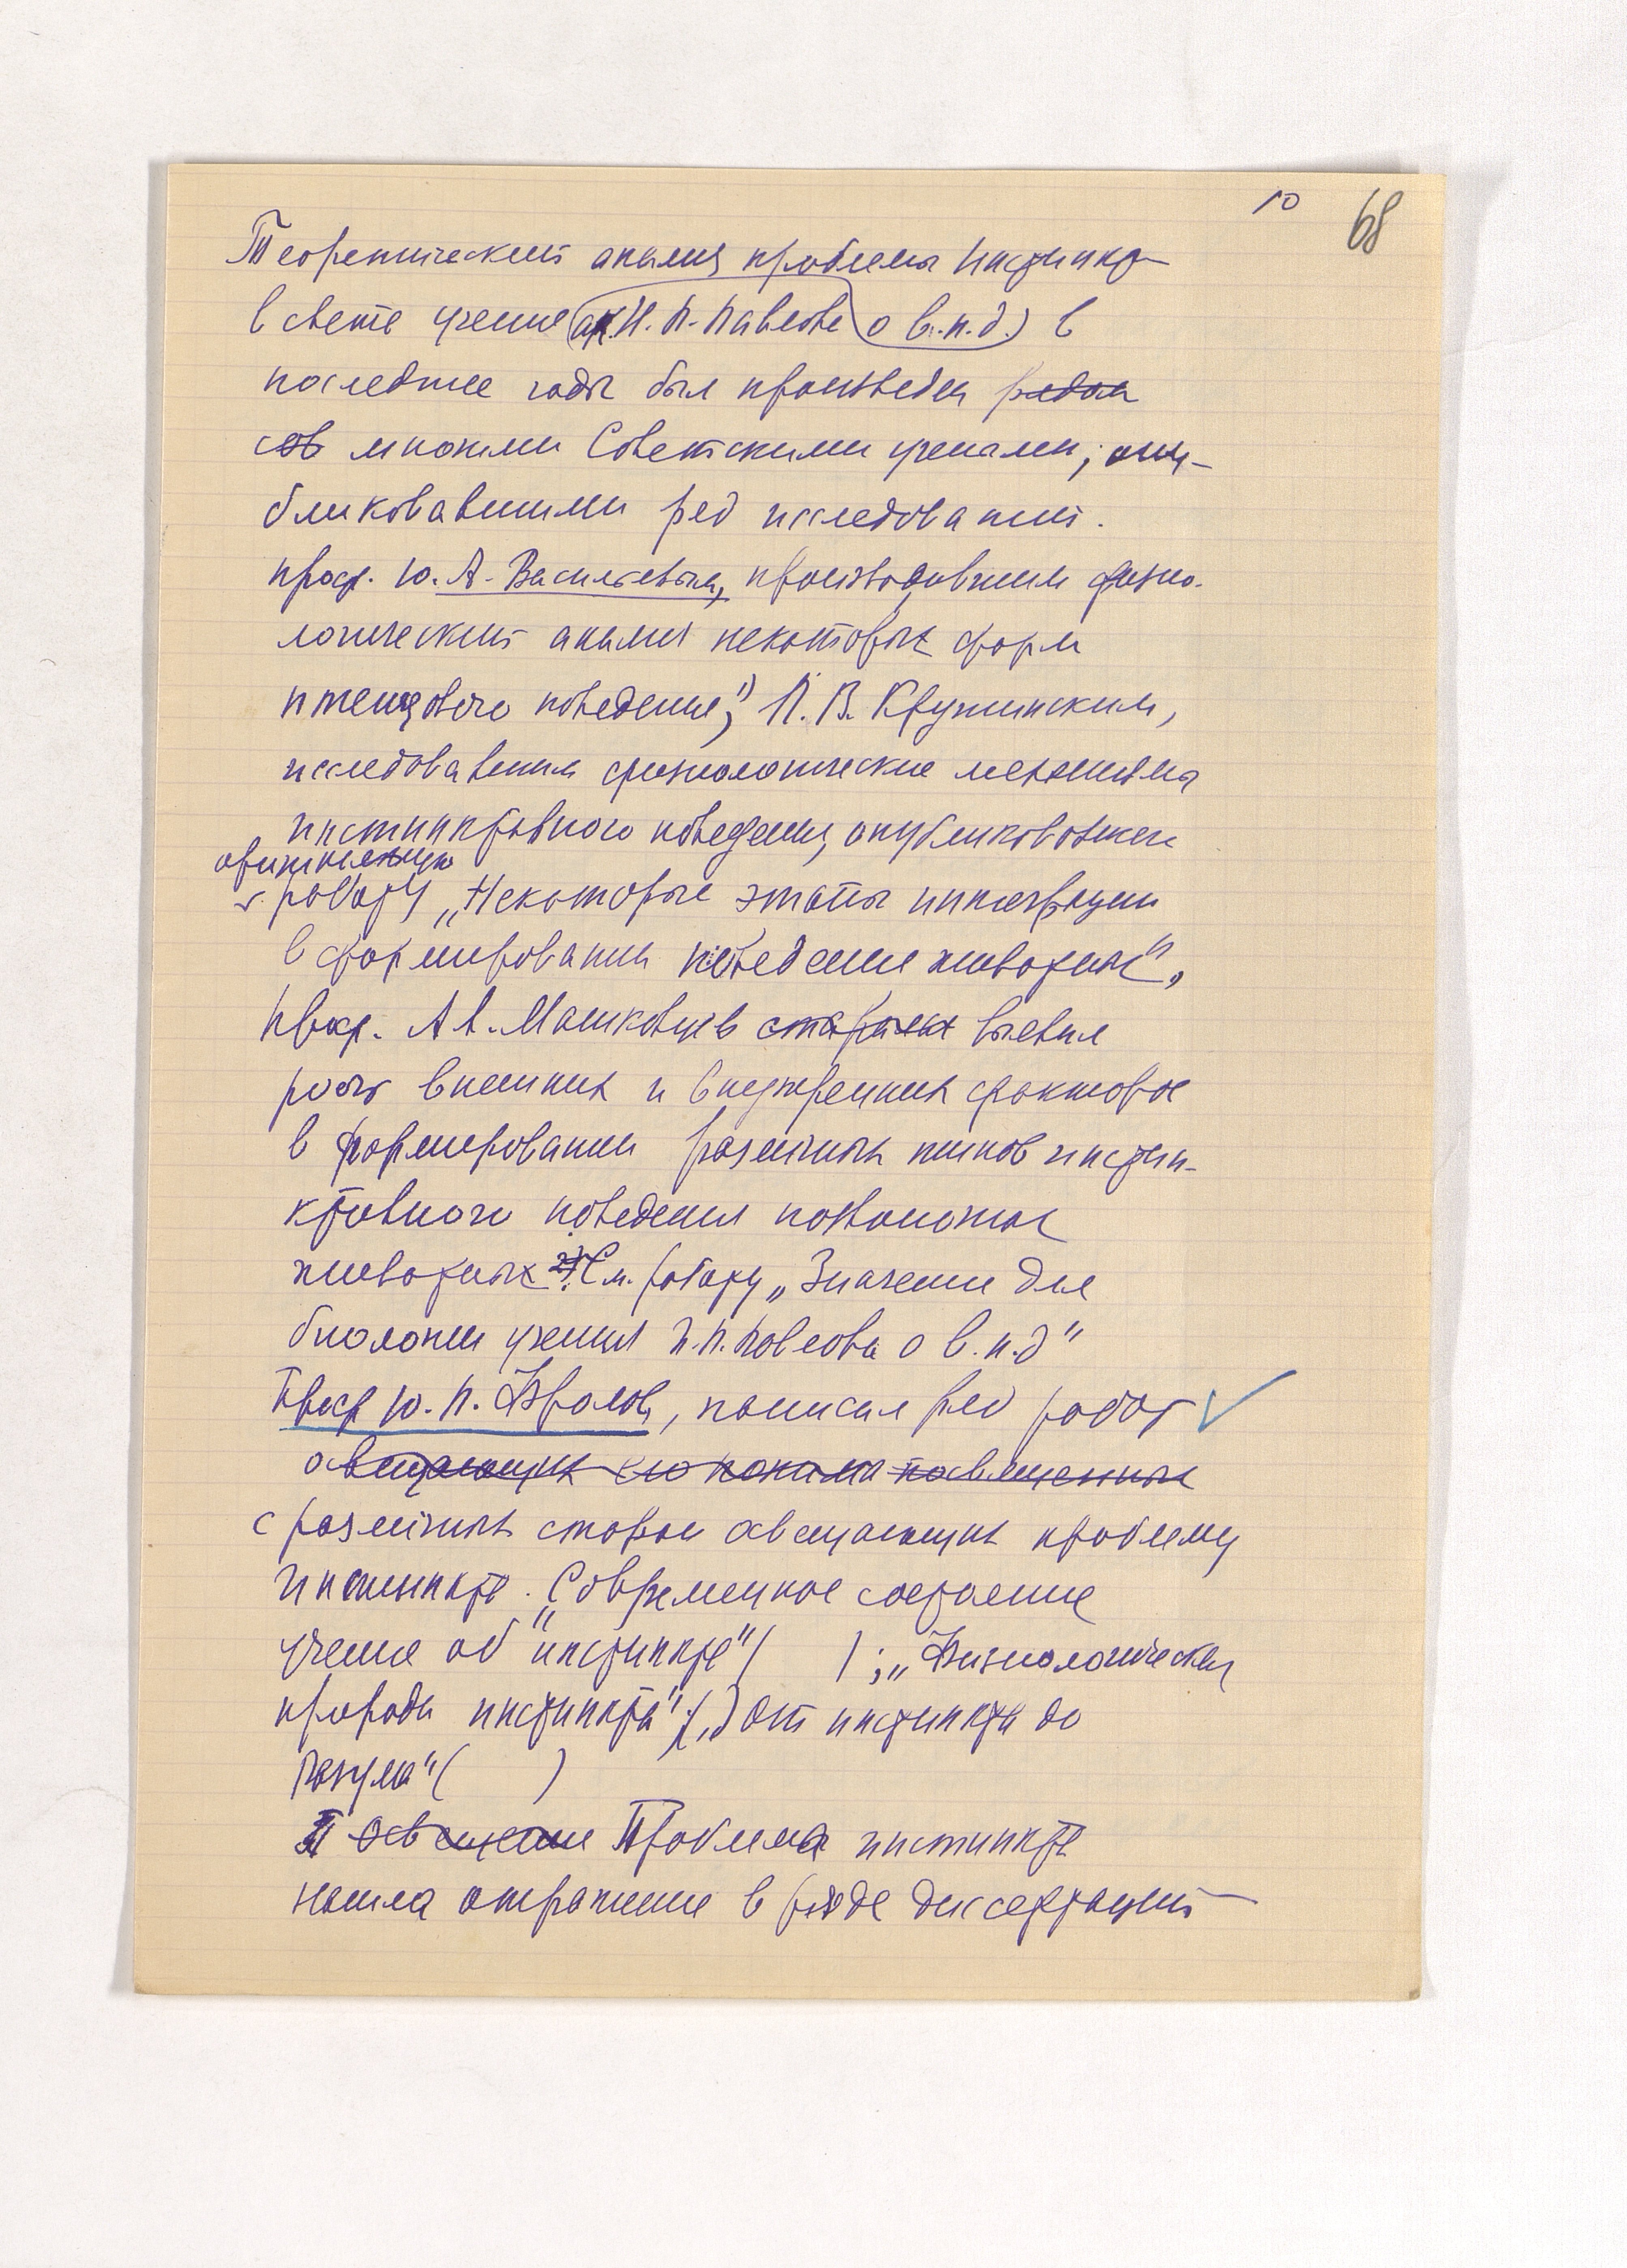 10 68
Теоретический анализ проблемы инстинкта
в свете учения (ак. И. П. Павлова о в.н.д.) в
последние годы был произведен рядом
сов многими Советскими учеными, опу-
бликовавшими ряд исследований.
проф. Ю. А. Васильевым, производившим физио-
логический анализ некоторых форм
птенцового поведения1), Л. В. Крушинским,
исследовавшим физиологические механизмы
инстинктивного поведения, опубликовавшем
оригинальную
работу „Некоторые этапы интеграции
в формировании поведения животных",
Проф. А. А. Машковцев выявил
роль внешних и внутренних факторов
в формировании различных типов инстин-
ктивного поведения позвоночных
животных 2) См. работу „Значение для
биологии учения И. П. Павлова о в.н.д"
Проф Ю. П. Фролов, написал ряд работ
освещающих посвященных
с различных сторон освещающих проблему
инстинкта. „Современное состояние
учения об инстинкте" ( ); „Физиологическая
природа инстинкта" ( ) От инстинкта до
разума" ( )
П Освещение Проблема инстинкта
нашла отражение в ряде диссертаций